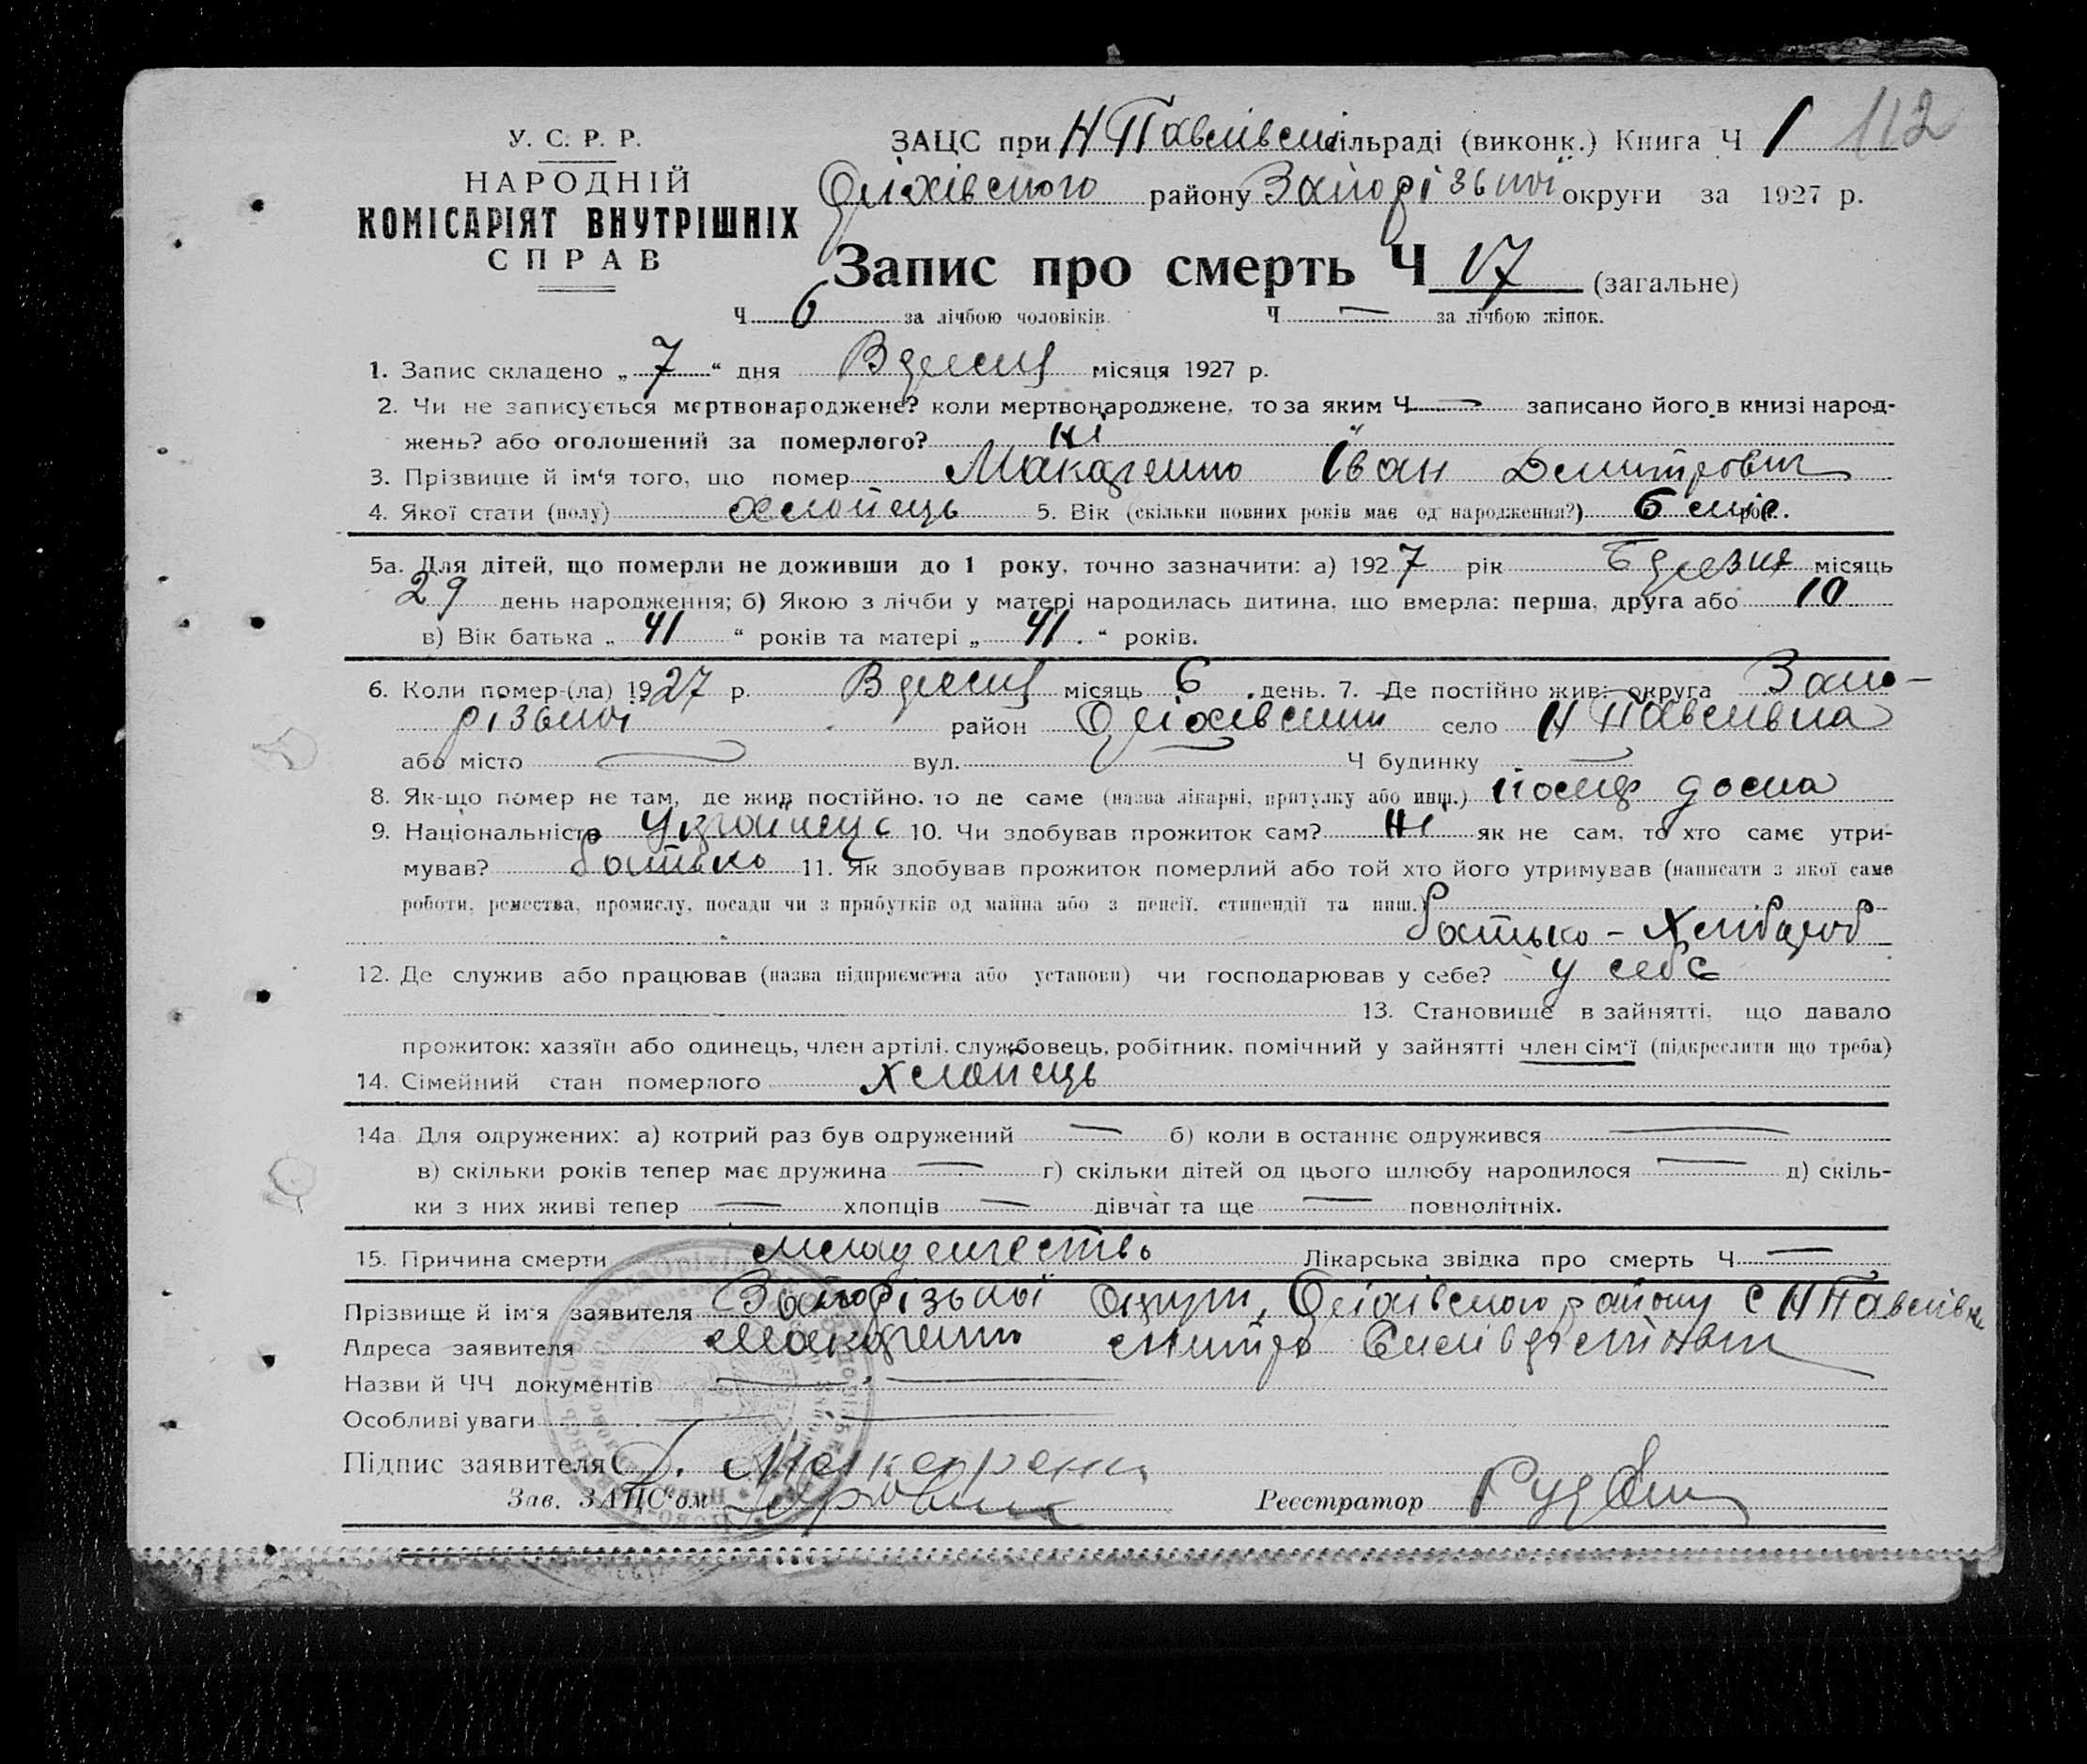 У. С. Р. Р.
НАРОДНІЙ
КОМІСАРІЯТ ВНУТРІШНІХ
СПРАВ
ЗАЦС при Н Павлівскі сільраді (виконк.) Книга Ч 1 112
Оріхівського району Запорізької округи за 1927 р.
Запис про смерть Ч 17 (загальне)
Ч 6 за лічбою чоловіків. Ч — за лічбою жінок.
1. Запис складено „ 7 “ дня Вересня місяця 1927 р.
2. Чи не записується мертвонароджене? коли мертвонароджене, то за яким Ч — записано його в книзі народ-
жень? або оголошений за померлого? Ні "
3. Прізвище й ім‘я того, що помер Макаренко Іван Дмитрович
4. Якої стати (полу) хлопець 5. Вік (скільки повних років має од народження?) 6 міс.
5а. Для дітей, що померли не доживши до 1 року, точно зазначити: а) 1927 рік Березня місяць
29 день народження; б) Якою з лічби у матері народилась дитина, що вмерла: перша, друга або 10
в) Вік батька „ 41 “ років та матері „ 41 . “ років.
6. Коли помер-(ла) 1927 р. Вересня місяць 6 день. 7. Де постійно жив: округа Запо-
різької район Оріхівський село Н Павлівка
або місто — вул. — Ч будинку —
8. Як-що помер не там, де жив постійно, то де саме (назва лікарні, притулку або инш.) помер дома
9. Національність Українец 10. Чи здобував прожиток сам? Ні як не сам, то хто саме утри-
мував? батько 11. Як здобував прожиток померлий або той хто його утримував (написати з якої саме
роботи, ремества, промислу, посади чи з прибутків од майна або з пенсії, стипендії та инш.)
батько - Хлібороб
12. Де служив або працював (назва підприємства або установи) чи господарював у себе? у себе
13. Становище в зайнятті, що давало
прожиток: хазяїн або одинець, член артілі, службовець, робітник, помічний у зайнятті член сім‘ї (підкреслити що треба)
14. Сімейний стан померлого Хлопець
14а Для одружених: а) котрий раз був одружений — б) коли в останнє одружився —
в) скільки років тепер має дружина — г) скільки дітей од цього шлюбу народилося — д) скіль-
ки з них живі тепер — хлопців — дівчат та ще — повнолітніх.
15. Причина смерти младенчество Лікарська звідка про смерть Ч —
Прізвище й ім‘я заявителя Запорізької Округи, Оріхівського району с Н Павлівка
Адреса заявителя Макаренко Дмитро
Назви й ЧЧ документів —
Особливі уваги —
Підпис заявителя Макаренко
Зав. ЗАЦС‘ом Реєстратор